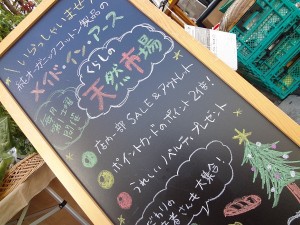 いらっしゃいませ
純オーガニックコットン製品の
メイド・イン・アース
くらしの
天然市場
毎月
第1土曜
開催
店内一部 SALE & アウトレット
ポイントカードのポイント2倍!
うれしいノベルティプレゼント
こだわりの
生産者さんも大集合!